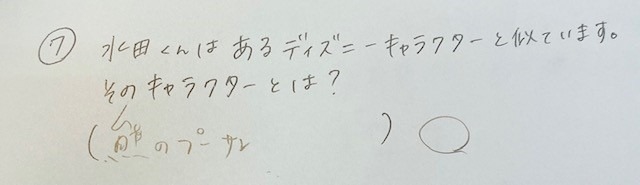 ⑦ 水田くんはあるディズニーキャラクターと似ています。
そのキャラクターとは?
(熊のプーサン ) ◯